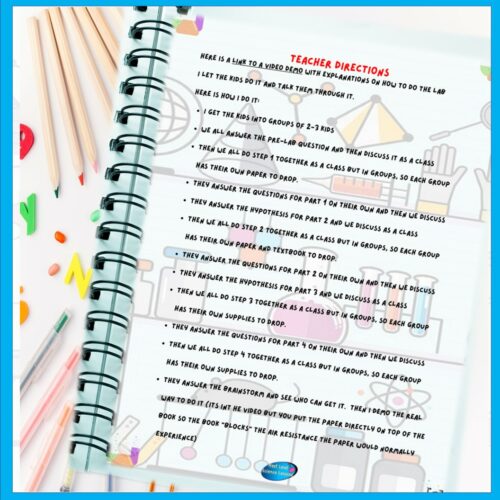 TEACHER DIRECTIONS
HERE IS A LINK TO A VIDEO DEMO WITH EXPLANATIONS ON HOW TO DO THE LAB
I LET THE KIDS DO IT AND TALK THEM THROUGH IT.
HERE IS HOW I DO IT:
• I GET THE KIDS INTO GROUPS OF 2-3 KIDS
• WE ALL ANSWER THE PRE-LAB QUESTION AND THEN DISCUSS IT AS A CLASS
• THEN WE ALL DO STEP 1 TOGETHER AS A CLASS BUT IN GROUPS, SO EACH GROUP
HAS THEIR OWN PAPER TO DROP.
• THEY ANSWER THE QUESTIONS FOR PART 1 ON THEIR OWN AND THEN WE DISCUSS
• THEY ANSWER THE HYPOTHESIS FOR PART 2 AND WE DISCUSS AS A CLASS
• THEN WE ALL DO STEP 2 TOGETHER AS A CLASS BUT IN GROUPS, SO EACH GROUP
HAS THEIR OWN PAPER AND TEXTBOOK TO DROP.
• THEY ANSWER THE QUESTIONS FOR PART 2 ON THEIR OWN AND THEN WE DISCUSS
• THEY ANSWER THE HYPOTHESIS FOR PART 3 AND WE DISCUSS AS A CLASS
• THEN WE ALL DO STEP 3 TOGETHER AS A CLASS BUT IN GROUPS, SO EACH GROUP
HAS THEIR OWN SUPPLIES TO DROP.
• THEY ANSWER THE QUESTIONS FOR PART 4 ON THEIR OWN AND THEN WE DISCUSS
• THEN WE ALL DO STEP 4 TOGETHER AS A CLASS BUT IN GROUPS, SO EACH GROUP
HAS THEIR OWN SUPPLIES TO DROP.
• THEY ANSWER THE BRAINSTORM AND SEE WHO CAN GET IT. THEN I DEMO THE REAL
WAY TO DO IT (ITS INT HE VIDEO BUT YOU PUT THE PAPER DIRECTLY ON TOP OF THE
BOOK SO THE BOOK "BLOCKS" THE AIR RESISTANCE THE PAPER WOULD NORMALLY
EXPERIENCE)
Next Level
Science Lessons